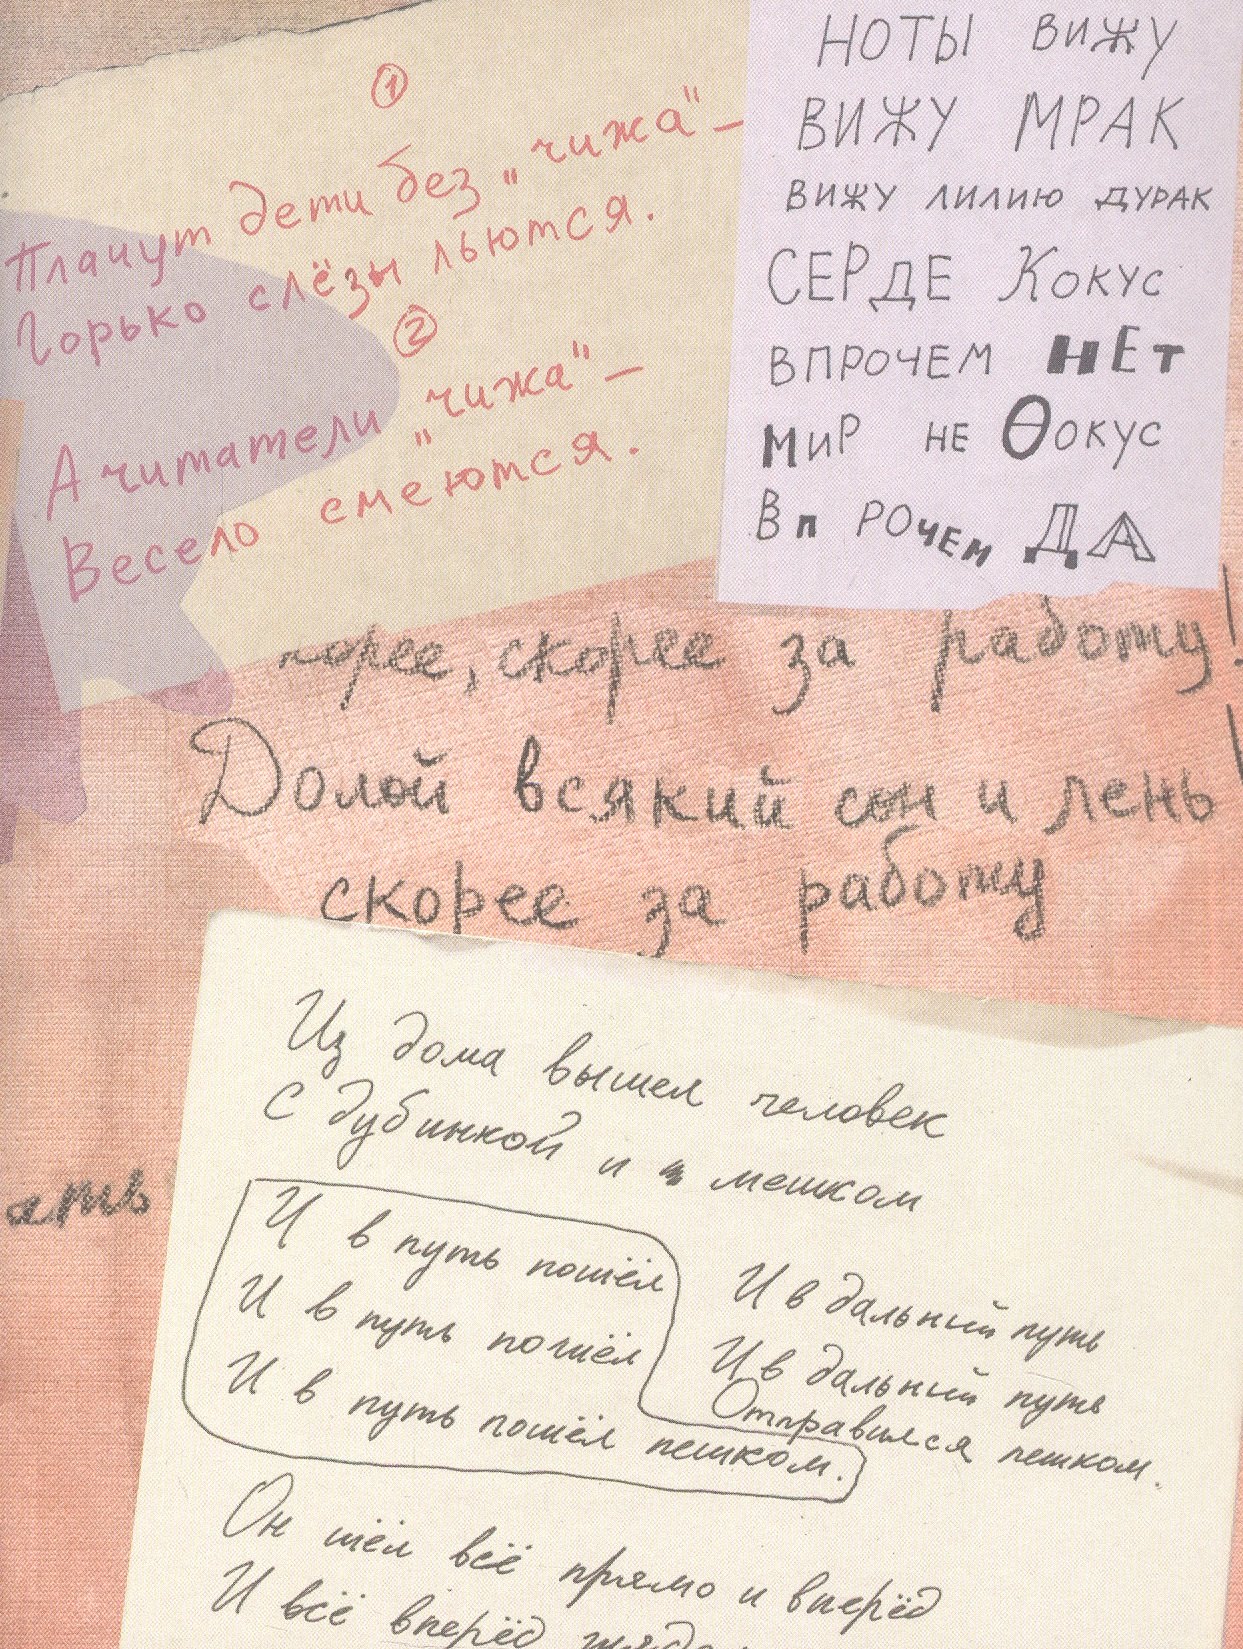 ①
Плачут дети без „чижа" –
Горько слёзы льются.
②
А читатели „чижа" –
Весело смеются.
НОТЫ ВИЖУ
ВИЖУ МРАК
ВИЖУ ЛИЛИЮ ДУРАК
СЕРДЕ КОКУС
ВПРОЧЕМ НЕТ
МИР НЕ ѲОКУС
ВПРОЧЕМ ДА
корее, скорее за работу!
Долой всякий сон и лень!
скорее за работу
ать
Из дома вышел человек
С дубинкой и мешком
И в путь пошёл
И в путь пошёл
И в путь пошёл пешком.
И в дальний путь
И в дальний путь
Отправился пешком.
Он шёл всё прямо и вперёд
И всё вперёд